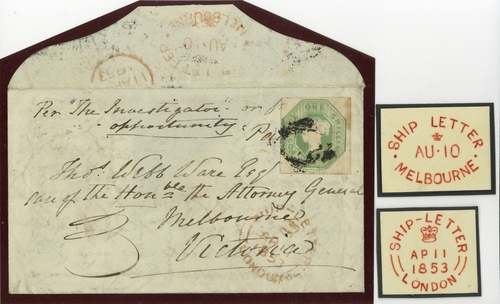 MELBOURNE
AU·10
Per "The Investigator" or
opportunity
ONE SHILLING
Thos. Webb Ware Esqr
care of the Honble the Attorney General
Melbourne
Victoria
LONDON
SHIP LETTER
AU·10
MELBOURNE
SHIP-LETTER
AP 11
1853
LONDON